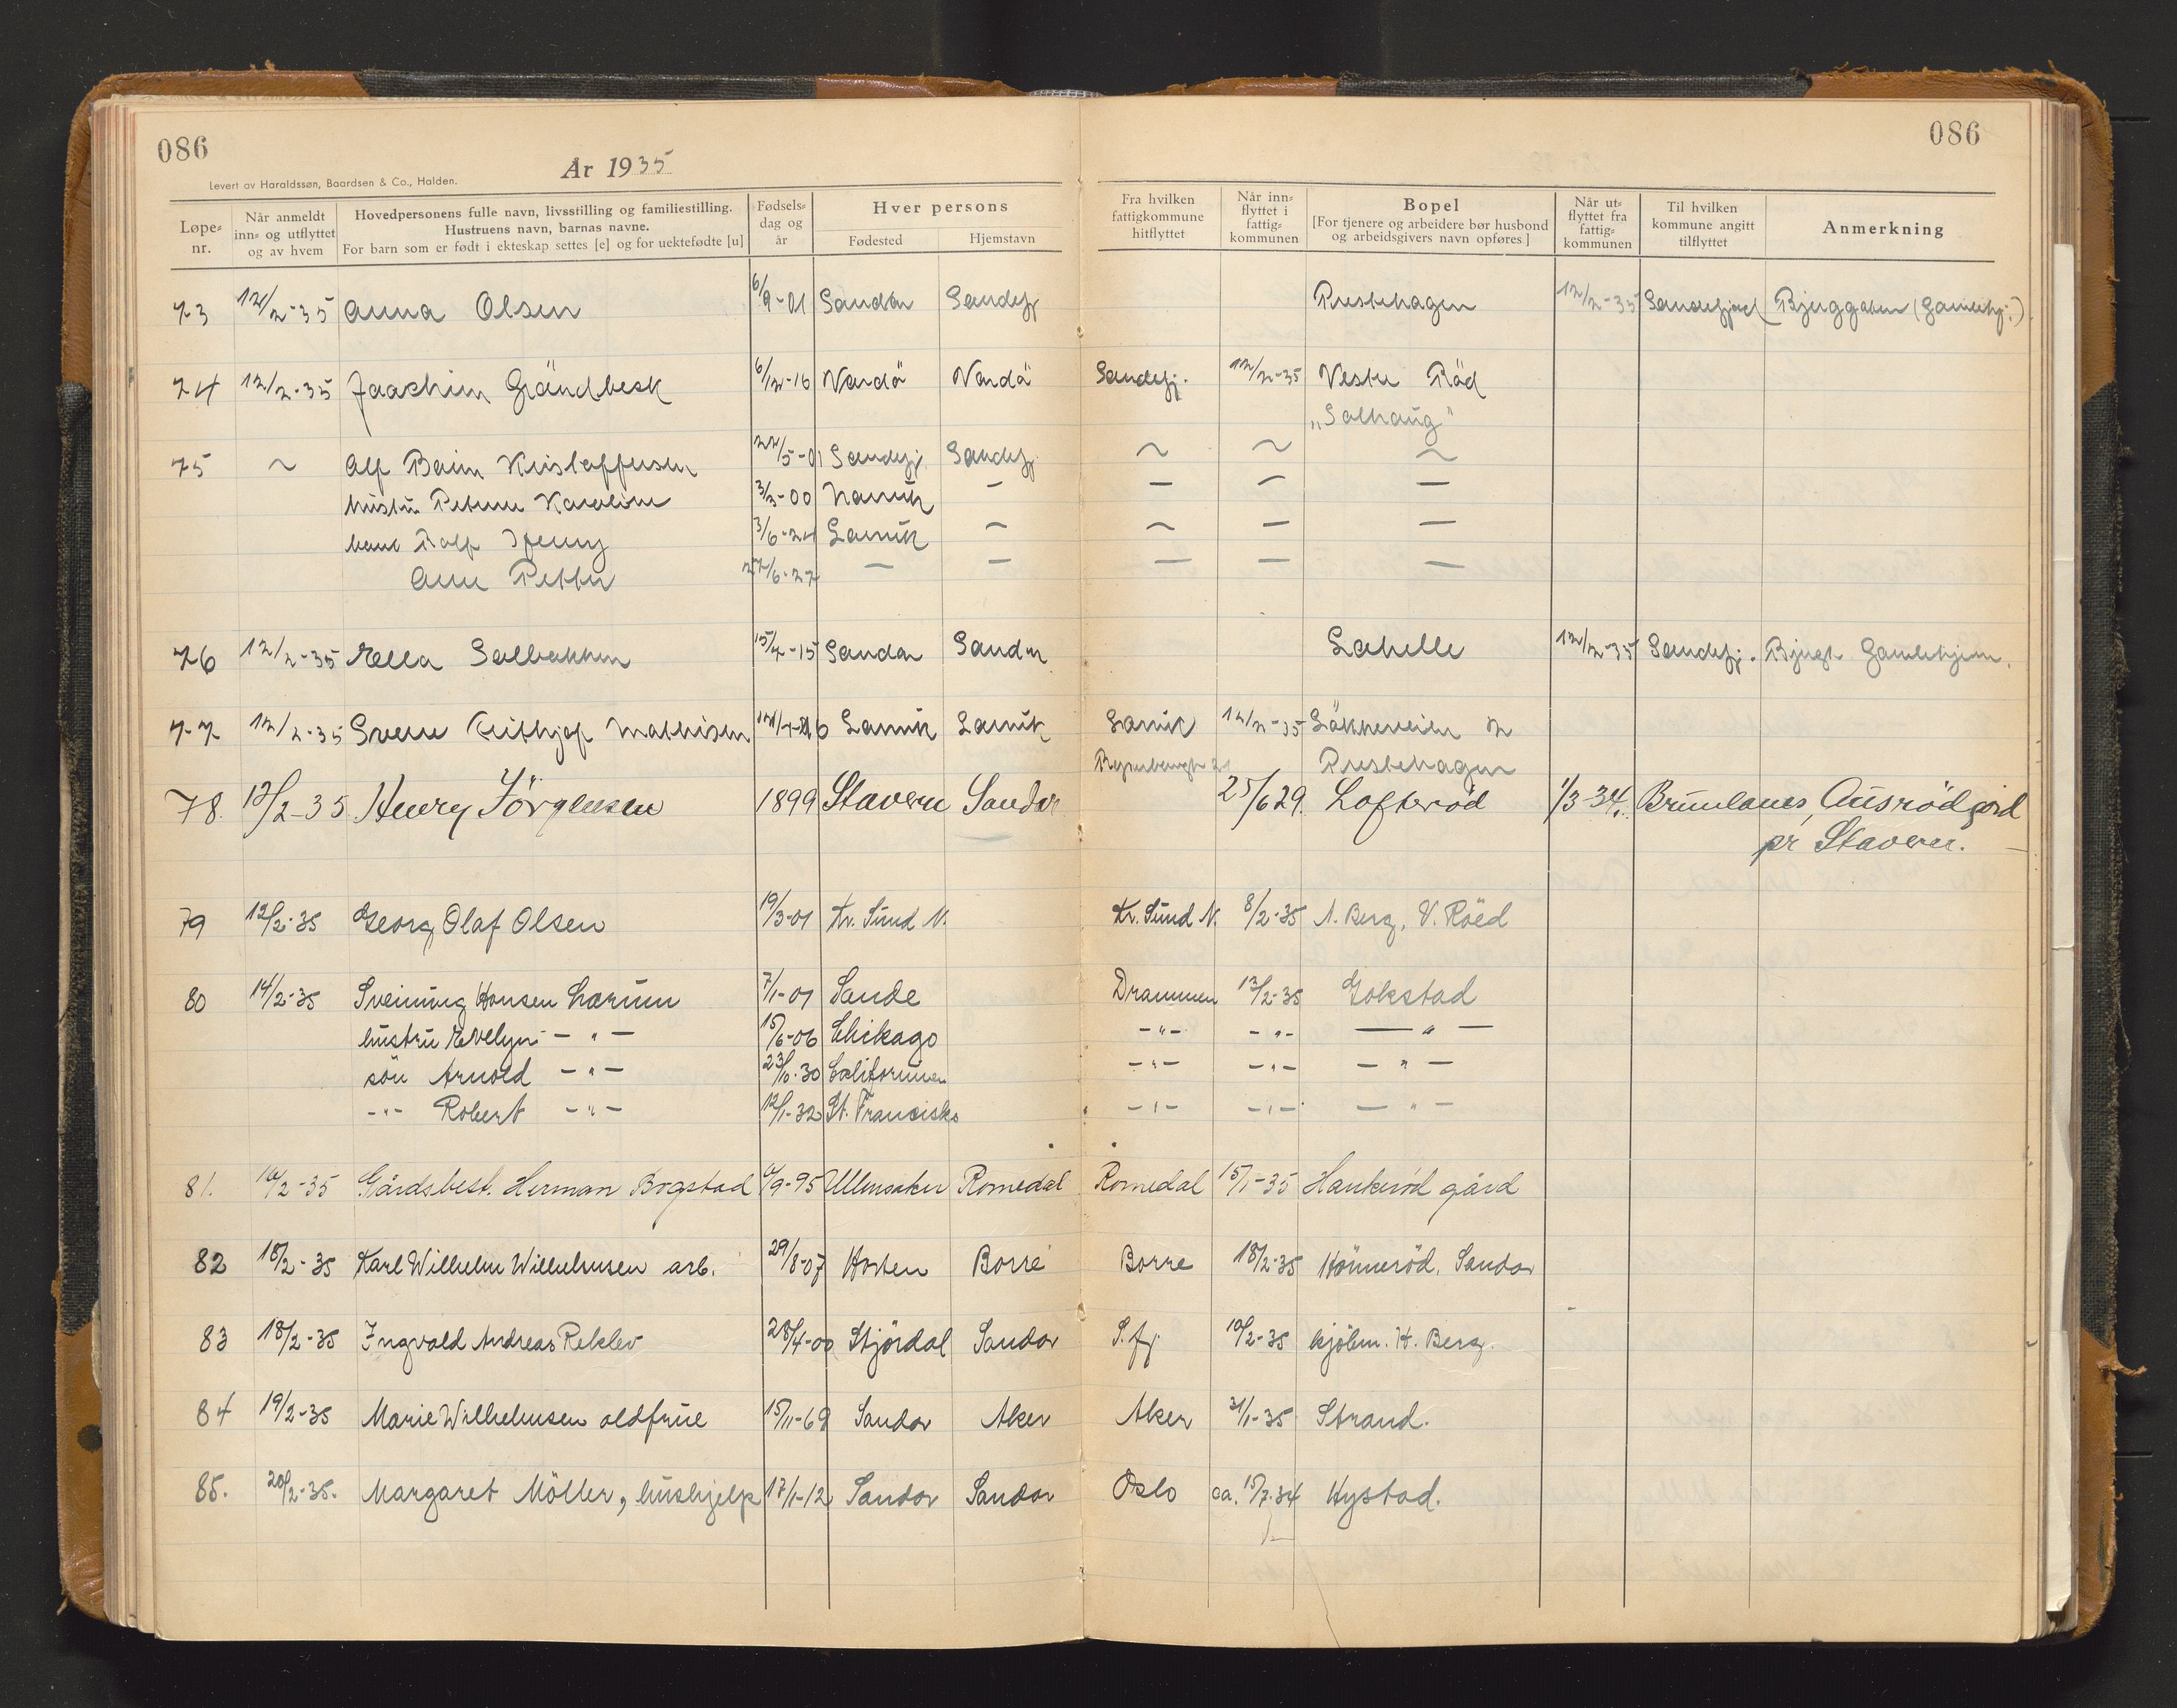 086
086
År 1935
Levert av Haraldssøn, Baardsen & Co., Halden.
Løpe-nr.
Når anmeldt inn- og utflyttet og av hvem
Hovedpersonens fulle navn, livsstilling og familiestilling. Hustruens navn, barnas navne. For barn som er født i ekteskap settes [e] og for uektefødte [u]
Fødsels-dag og år
Hver persons
Fødested
Hjemstavn
Fra hvilken fattigkommune hitflyttet
Når inn-flyttet i fattig-kommunen
Bopel [For tjenere og arbeidere bør husbond og arbeidsgivers navn opføres]
Når ut-flyttet fra fattig-kommunen
Til hvilken kommune angitt tilflyttet
Anmerkning
73 12/2-35 Anna Olsen 6/9-01 Sandar Sandefj Prestehagen 12/2-35 Sandefjord (Gamlehj.)
74 12/2-35 Joachim 6/12-16 Vardö Vardö Sandefj. 12/2-35 Vestre Röd
"Solhaug"
75 ~ Alf Kristoffersen 22/5-01 Sandefj Sandefj ~ ~ ~
hustru Petrine Karoline 3/3-00 Larvik - - - -
barn Rolf 3/6-24 Larvik ~ ~ - -
Petter 27/6-27 - - - - -
76 12/2-35 Ella Solbakken 15/7-15 Sandar Sandar Lahelle 12/2-35 Sandefj. Gamlehjem.
77 12/2-35 Sverre Frithjof Mathisen Larvik Larvik Larvik 12/2-35 Lökkeveien
Prestehagen
78. 12/2-35 Henry Jörgensen 1899 Stavern Sandar 25/6 29. Lofterød 1/3-34. Brunlanes, Ausrød gård
pr Stavern.
79 12/2-35 Georg Olaf Olsen 19/3-01 Kr. Sund N. Kr. Sund N. 8/2-35 A. Berg, V. Röed
80 14/2-35 Sveinung Hansen Larum 7/1-01 Sande Drammen 13/2-35 Gokstad
hustru Evelyn - " - 15/6-06 Chikago - " - - " - - " -
sön Arnold - " - 23/10-30 Californien - " - - " - - " -
- " - Robert - " - 12/1-32 St. Fransisko - " - - " - - " -
81. 16/2-35 Gårdsbest. Herman Bogstad 6/9-95 Ullensaker Romedal Romedal 15/1-35 Haukerød gård
82 18/2-35 Karl Wilhelm Wilhelmsen arb. 29/8-07 Horten Borre Borre 18/2-35 Hönneröd, Sandar
83 18/2-35 Ingvald Andreas Reklev 28/4-00 Stjördal Sandar S.fj. 10/2-35 kjölm. H. Berg.
84 19/2-35 Marie Wilhelmsen oldfrue 15/11-69 Sandar Aker Aker 31/1-35 Strand.
85. 20/2-35. Margaret Möller, hushjelp 17/1-12 Sandar Sandar Oslo ca. 15/7-34 Hystad.